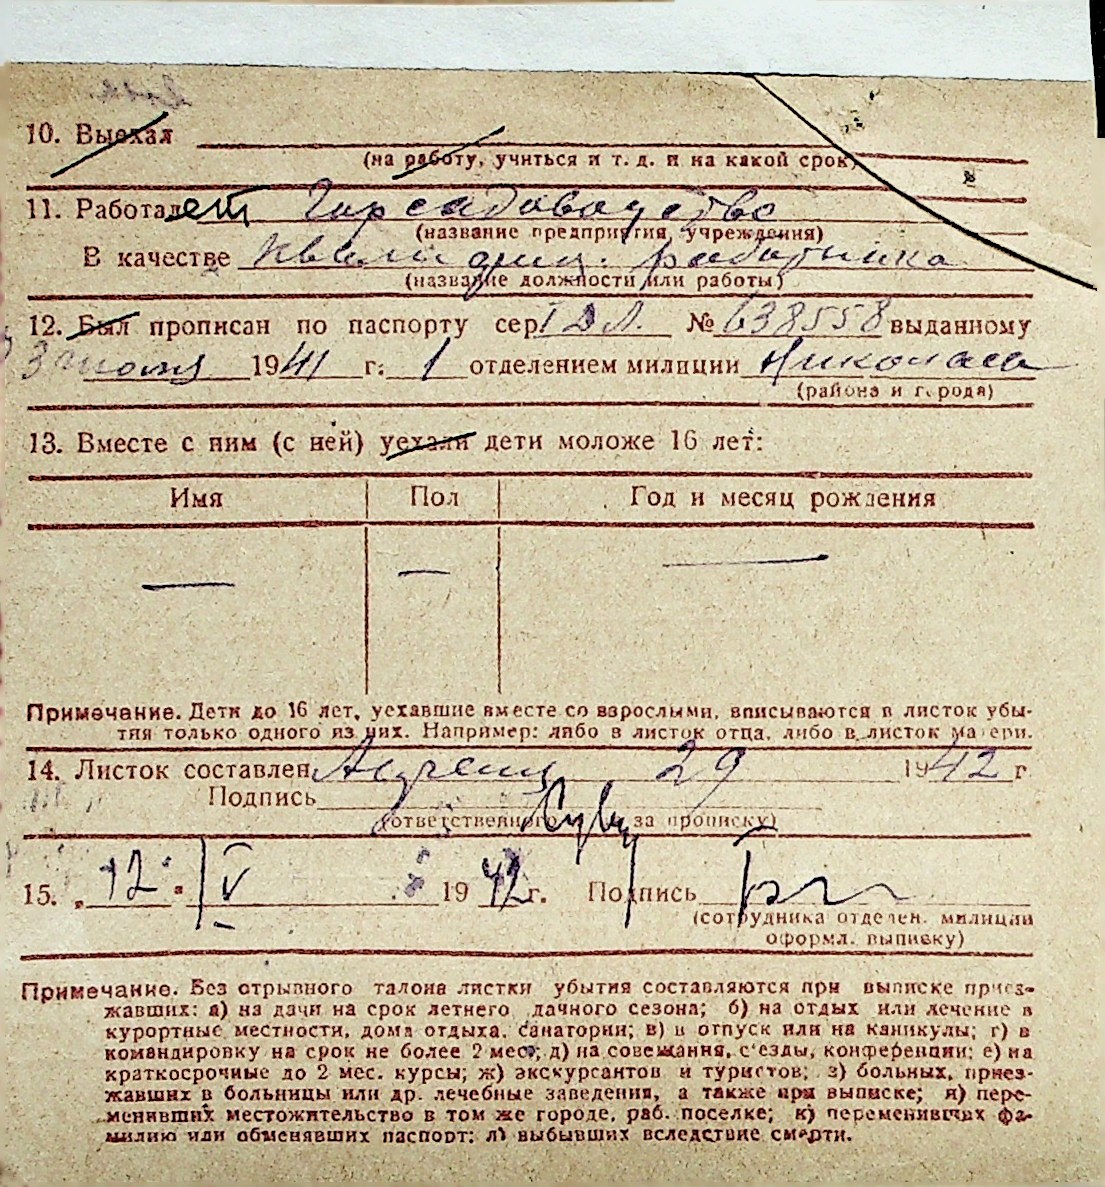 10. Выехал
(на работу, учиться и т. д. и на какой срок)
11. Работает Горсадоводство
(название предприятия, учреждения)
В качестве квалифиц. работника
(название должности или работы)
12. Был прописан по паспорту сер. I ДЛ. № 638558 выданному
3 июля 1941 г. 1 отделением милиции Николаев
(района и города)
13. Вместе с ним (с ней) уехали дети моложе 16 лет:
Имя Пол Год и месяц рождения
— — —
Примечание. Дети до 16 лет, уехавшие вместе со взрослыми, вписываются в листок убы-
тия только одного из них. Например: либо в листок отца, либо в листок матери.
14. Листок составлен 29 1942 г
Подпись
(ответственного за прописку)
15. „12" V 1942 г. Подпись
(сотрудника отделен. милиции
оформл. выписку)
Примечание. Без отрывного талона листки убытия составляются при выписке приез-
жавших: а) на дачи на срок летнего дачного сезона; б) на отдых или лечение в
курортные местности, дома отдыха, санатории; в) в отпуск или на каникулы; г) в
командировку на срок не более 2 мес; д) на совещания, с'езды, конференции; е) на
краткосрочные до 2 мес. курсы; ж) экскурсантов и туристов; з) больных, приез-
жавших в больницы или др. лечебные заведения, а также при выписке; и) пере-
менивших местожительство в том же городе, раб. поселке; к) переменивших фа-
милию или обменявших паспорт; л) выбывших вследствие смерти.